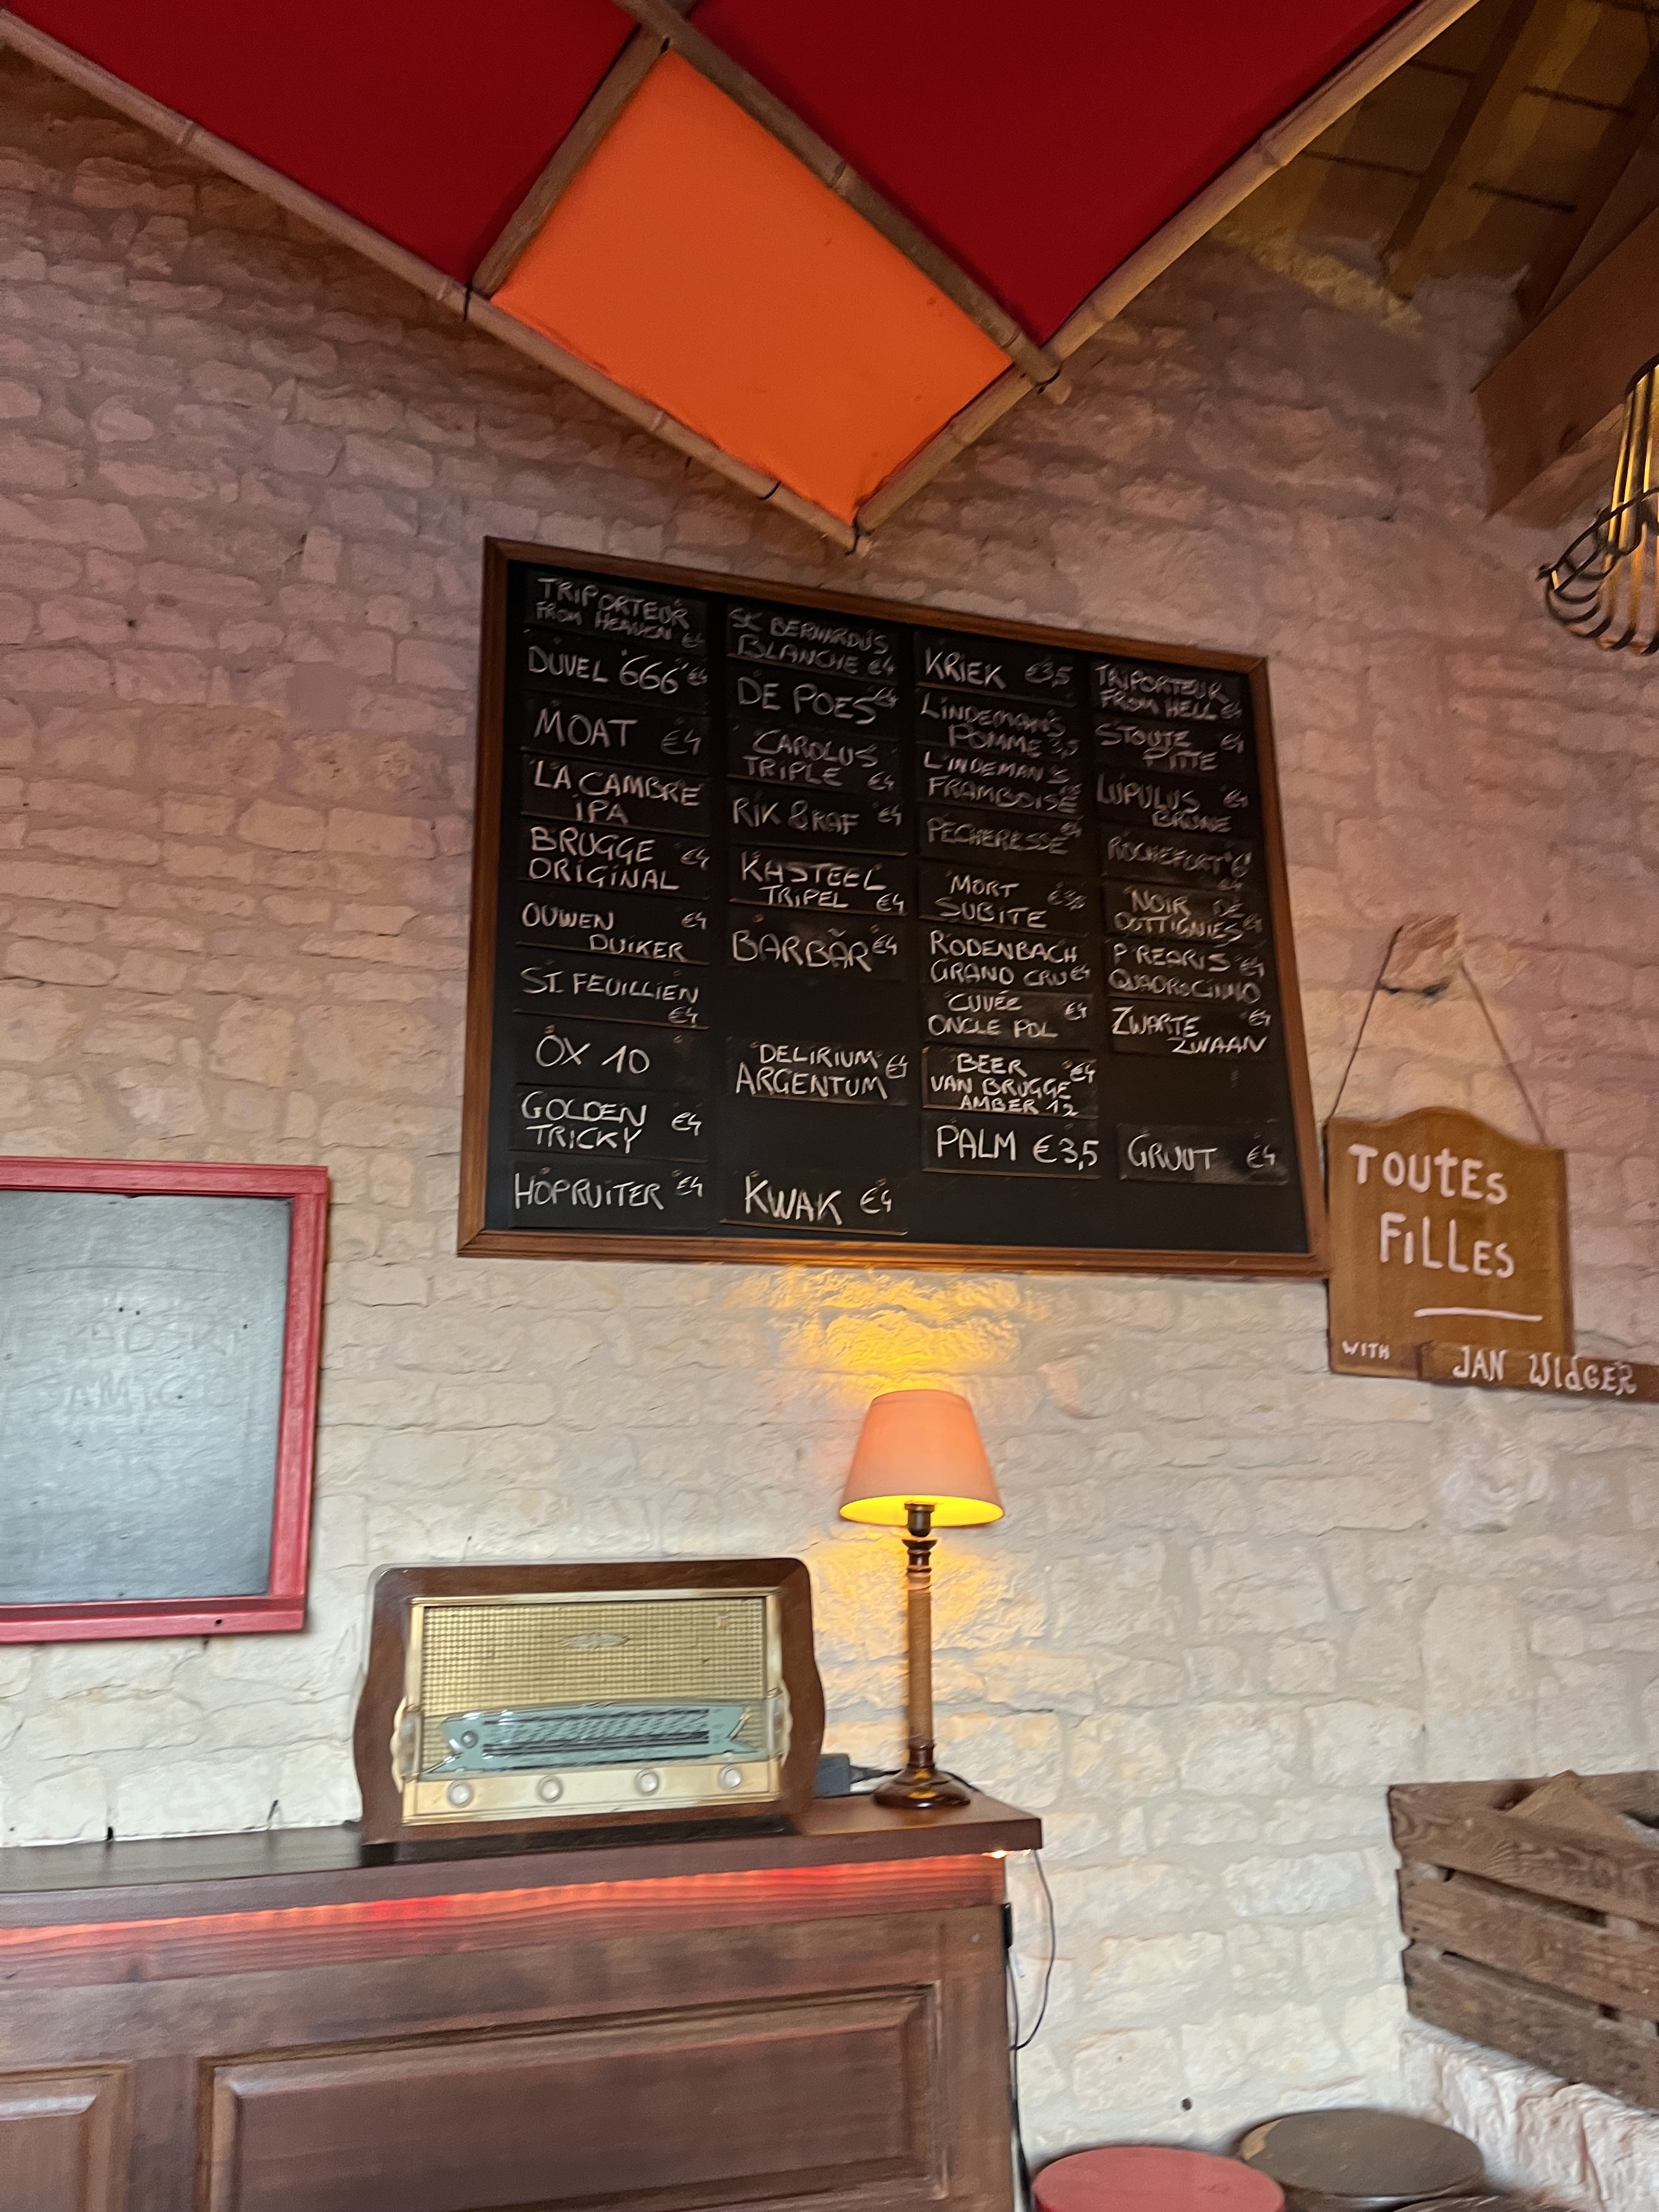 TRIPORTEUR
FROM HEAVEN €4
DUVEL "666" €4
MOAT €4
LA CAMBRE
IPA
BRUGGE €4
ORIGINAL
OUWEN €4
DUIKER
ST. FEUILLIEN
€4
OX 10
GOLDEN €4
TRICKY
HOPRUITER €4
ST BERNARDUS
BLANCHE €4
DE POES €4
CAROLUS
TRIPLE €4
RIK & RAF €4
KASTEEL
TRIPEL €4
BARBAR €4
DELIRIUM €4
ARGENTUM
KWAK €4
KRIEK €3,5
LINDEMAN'S
POMME 3,5
LINDEMAN'S
FRAMBOISE
PECHERESSE €4
MORT €3,5
SUBITE
RODENBACH
GRAND CRU €4
CUVÉE €4
ONCLE POL
BEER €4
VAN BRUGGE
AMBER 12
PALM €3,5
TRIPORTEUR
FROM HELL €4
STOUTE €4
PITTE
LUPULUS €4
BRUNE
ROCHEFORT
€4
NOIR DE
DOTTIGNIES €4
PREARIS €4
QUADROCINNO
ZWARTE €4
ZWAAN
GRUUT €4
TOUTES
FILLES
WITH JAN WIDGER